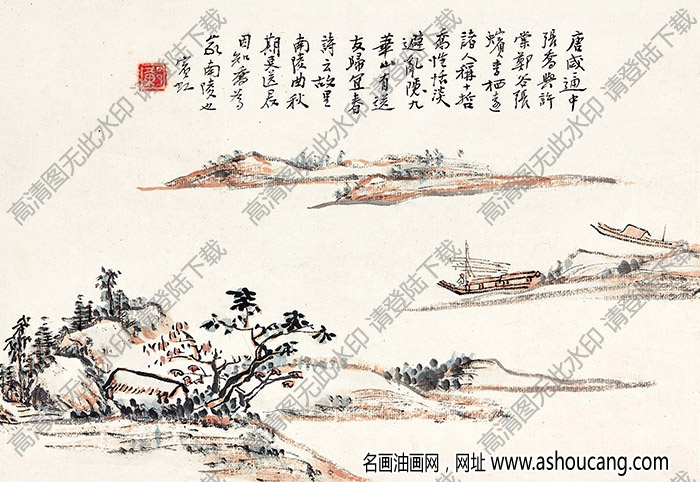 唐咸通中
張喬與許
棠鄭谷張
蠙李栖遠
諸人稱十哲
喬性恬淡
避亂隱九
華山有送
友歸宜春
詩云故里
南陵曲秋
期更送君
因知喬為
家南陵也
賓虹
高清图无此水印 请登陆下载
名画油画网，网址 www.ashoucang.com